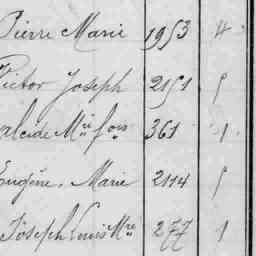 Pierre Marie 1953 4
Victor Joseph 2151 1
alcide Mie fois 361 1
Eugène, Marie 2114 1
Joseph Louis Mie 277 1